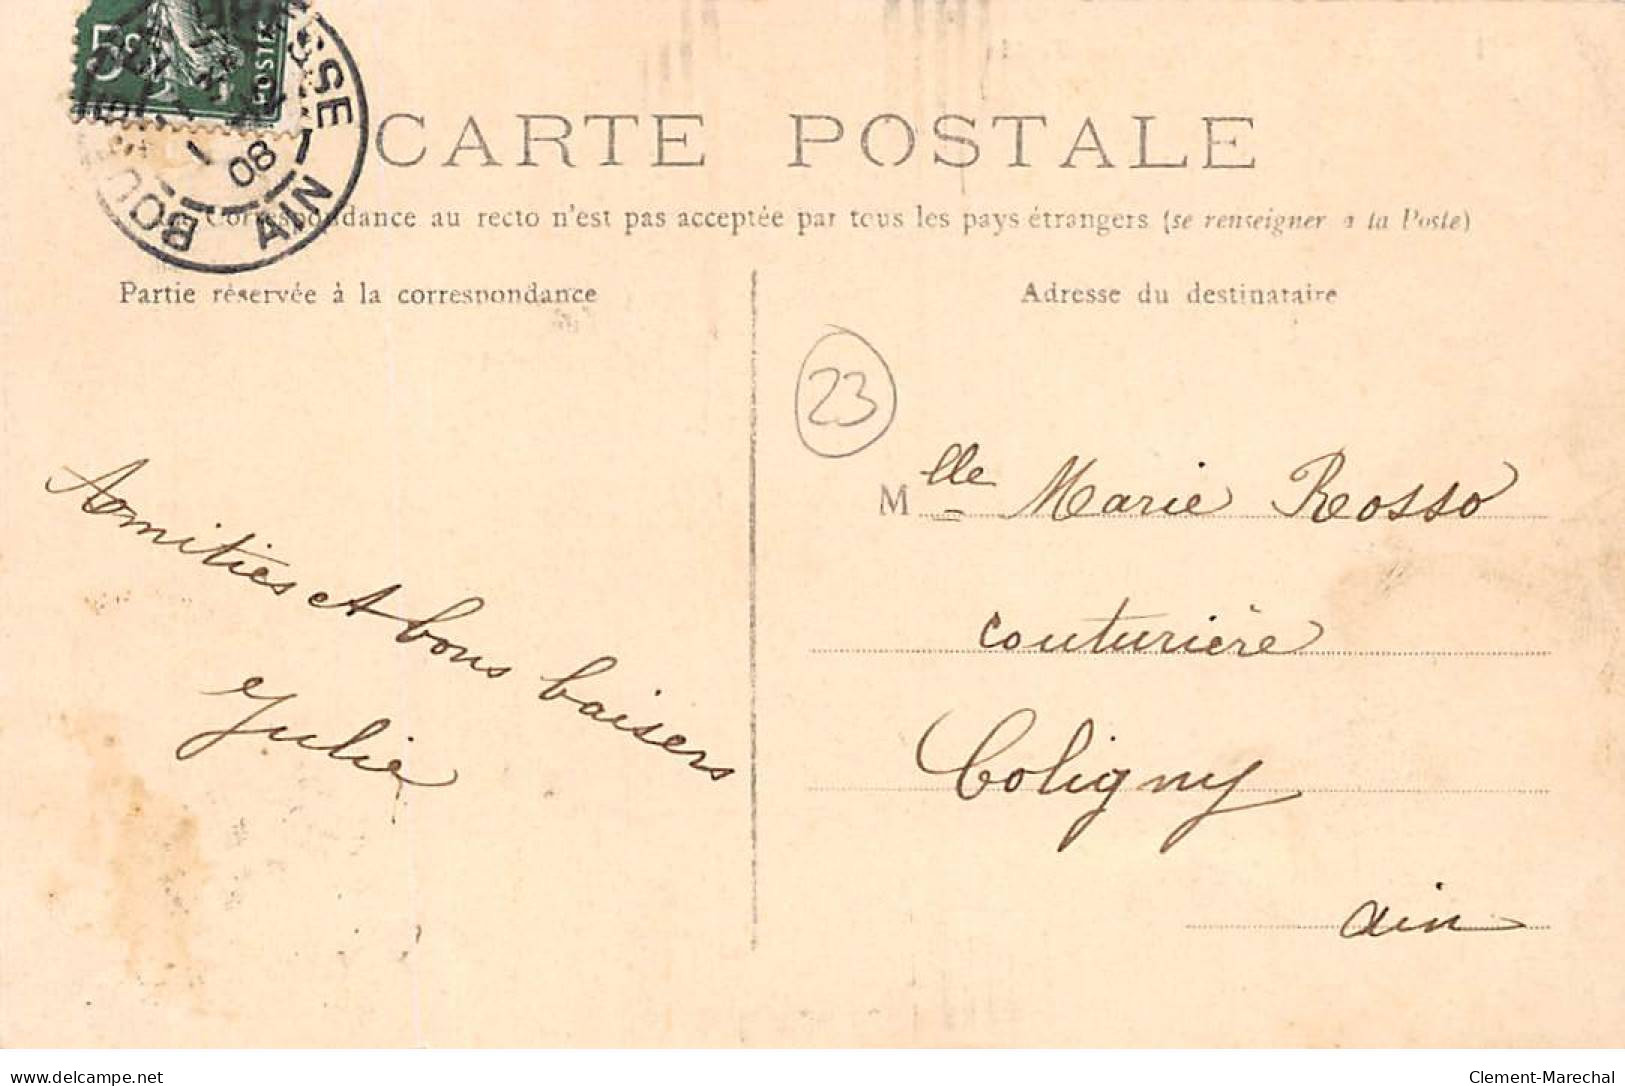 5c
POSTES
BOU ESSE
08
AIN
CARTE POSTALE
Correspondance au recto n'est pas acceptée par tous les pays étrangers (se renseigner à la Poste)
Partie réservée à la correspondance
Adresse du destinataire
23
Mlle Marie Rosso
couturière
Coligny
Ain
Amitiés et bons baisers
Julie
delcampe.net
Clement-Marechal